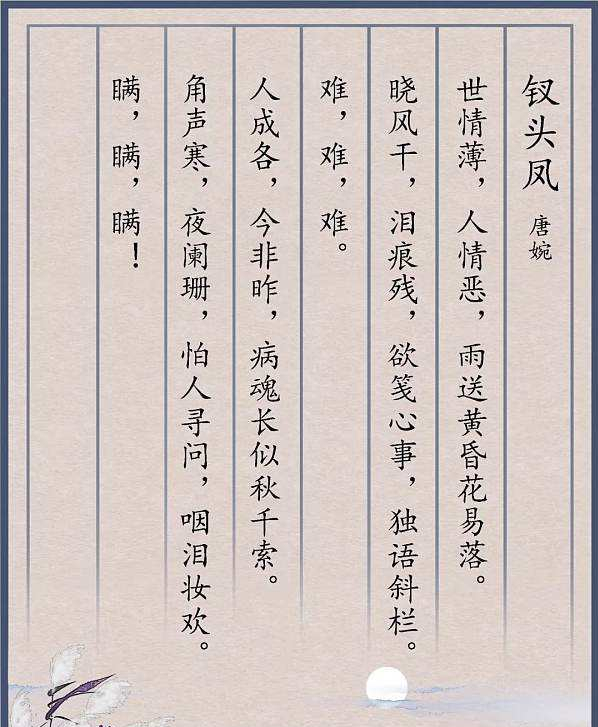 钗头凤
唐婉
世情薄，人情恶，雨送黄昏花易落。
晓风干，泪痕残，欲笺心事，独语斜栏。
难，难，难。
人成各，今非昨，病魂长似秋千索。
角声寒，夜阑珊，怕人寻问，咽泪妆欢。
瞒，瞒，瞒！